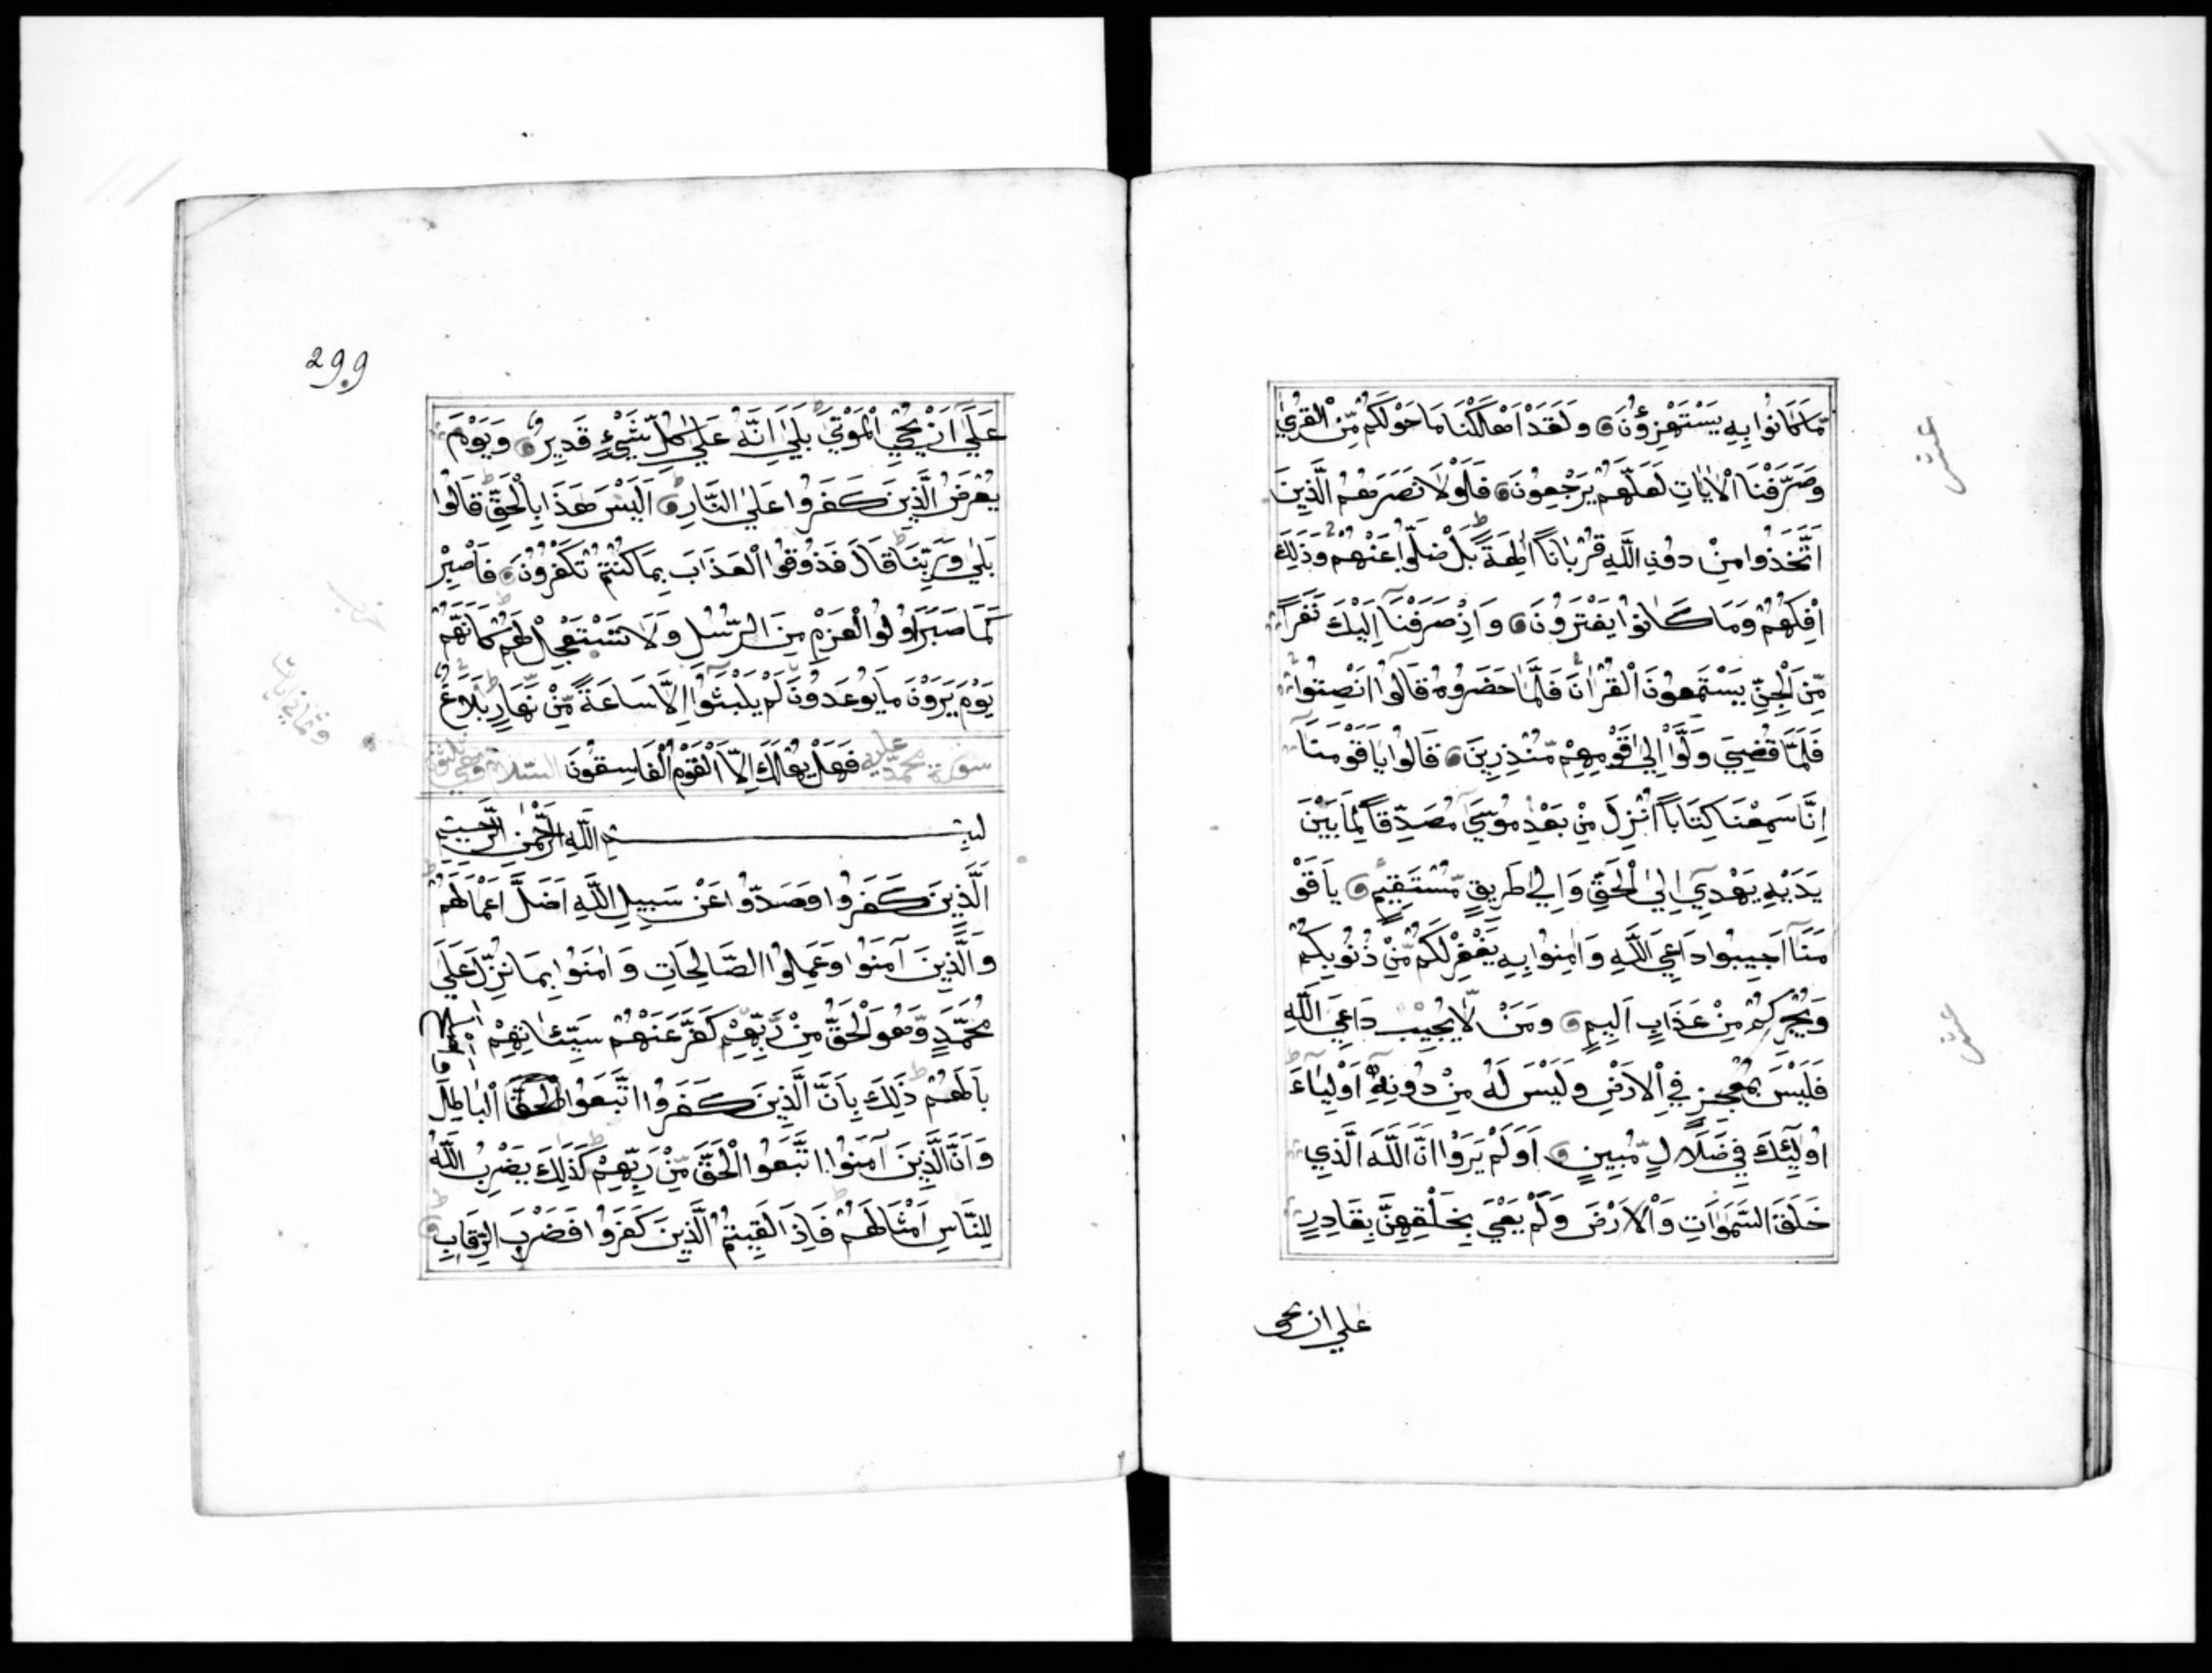 مَّا كَانُوا بِهِ يَسْتَهْزِؤُنَ وَلَقَدْ اَهْلَكْنَا مَا حَوْلَكُمْ مِّنَ الْقُرٰي
وَصَرَّفْنَا الْاٰيَاتِ لَعَلَّهُمْ يَرْجِعُونَ فَلَوْلَا نَصَرَهُمُ الَّذِينَ
اتَّخَذُوا مِنْ دُونِ اللَّهِ قُرْبَاناً اٰلِهَةً بَلْ ضَلُّوا عَنْهُمْ وَذَلِكَ
اِفْكُهُمْ وَمَا كَانُوا يَفْتَرُونَ وَاِذْ صَرَفْنَا اِلَيْكَ نَفَراً
مِّنَ الْجِنِّ يَسْتَمِعُونَ الْقُرْاٰنَ فَلَمَّا حَضَرُوهُ قَالُوا اَنْصِتُوا
فَلَمَّا قُضِيَ وَلَّوْا اِلٰي قَوْمِهِمْ مُّنْذِرِينَ قَالُوا يَا قَوْمَنَا
اِنَّا سَمِعْنَا كِتَاباً اُنْزِلَ مِنْ بَعْدِ مُوسَيٰ مُصَدِّقاً لِمَا بَيْنَ
يَدَيْهِ يَهْدِي اِلَي الْحَقِّ وَاِلٰي طَرِيقٍ مُّسْتَقِيمٍ يَا قَوْ
مَنَا اَجِيبُوا دَاعِيَ اللَّهِ وَاٰمِنُوا بِهِ يَغْفِرْ لَكُمْ مِّنْ ذُنُوبِكُمْ
وَيُجِرْكُمْ مِنْ عَذَابٍ اَلِيمٍ وَمَنْ لَّا يُجِيْبْ دَاعِيَ اللَّهِ
فَلَيْسَ بِمُعْجِزٍ فِي الْاَرْضِ وَلَيْسَ لَهُ مِنْ دُونِهِ اَوْلِيَاءُ
اُولٰٓئِكَ فِي ضَلَالٍ مُّبِينٍ اَوَلَمْ يَرَوْا اَنَّ اللَّهَ الَّذِي
خَلَقَ السَّمٰوَاتِ وَالْاَرْضَ وَلَمْ يَعْيَ بِخَلْقِهِنَّ بِقَادِرٍ
علي ان يحي
عشر
عشر
299
عَلَيٰ اَنْ يُحْيِيَ الْمَوْتَيٰ بَلَيٰ اِنَّهُ عَلَيٰ كُلِّ شَيْءٍ قَدِيرٌ وَيَوْمَ
يُعْرَضُ الَّذِينَ كَفَرُوا عَلَي النَّارِ اَلَيْسَ هَذَا بِالْحَقِّ قَالُوا
بَلَيٰ وَرَبِّنَا قَالَ فَذُوقُوا الْعَذَابَ بِمَا كُنْتُمْ تَكْفُرُونَ فَاصْبِرْ
كَمَا صَبَرَ اُولُوا الْعَزْمِ مِنَ الرُّسُلِ وَلَا تَسْتَعْجِلْ لَهُمْ كَاَنَّهُمْ
يَوْمَ يَرَوْنَ مَا يُوعَدُونَ لَمْ يَلْبَثُوا اِلَّا سَاعَةً مِّنْ نَّهَارٍ بَلَاغٌ
فَهَلْ يُهْلَكُ اِلَّا الْقَوْمُ الْفَاسِقُونَ
سورة محمد عليه السلام
بسم اللَّهِ الرَّحْمٰنِ الرَّحِيمِ
الَّذِينَ كَفَرُوا وَصَدُّوا عَنْ سَبِيلِ اللَّهِ اَضَلَّ اَعْمَالَهُمْ
وَالَّذِينَ آمَنُوا وَعَمِلُوا الصَّالِحَاتِ وَاٰمَنُوا بِمَا نُزِّلَ عَلَيٰ
مُحَمَّدٍ وَّهُوَ الْحَقُّ مِنْ رَّبِّهِمْ كَفَّرَ عَنْهُمْ سَيِّئَاتِهِمْ
بَالَهُمْ ذَلِكَ بِاَنَّ الَّذِينَ كَفَرُوا اتَّبَعُوا الْبَاطِلَ
وَاَنَّ الَّذِينَ آمَنُوا اتَّبَعُوا الْحَقَّ مِنْ رَبِّهِمْ كَذَلِكَ يَضْرِبُ اللَّهُ
لِلنَّاسِ اَمْثَالَهُمْ فَاِذَا لَقِيتُمُ الَّذِينَ كَفَرُوا فَضَرْبَ الرِّقَابِ
حزب